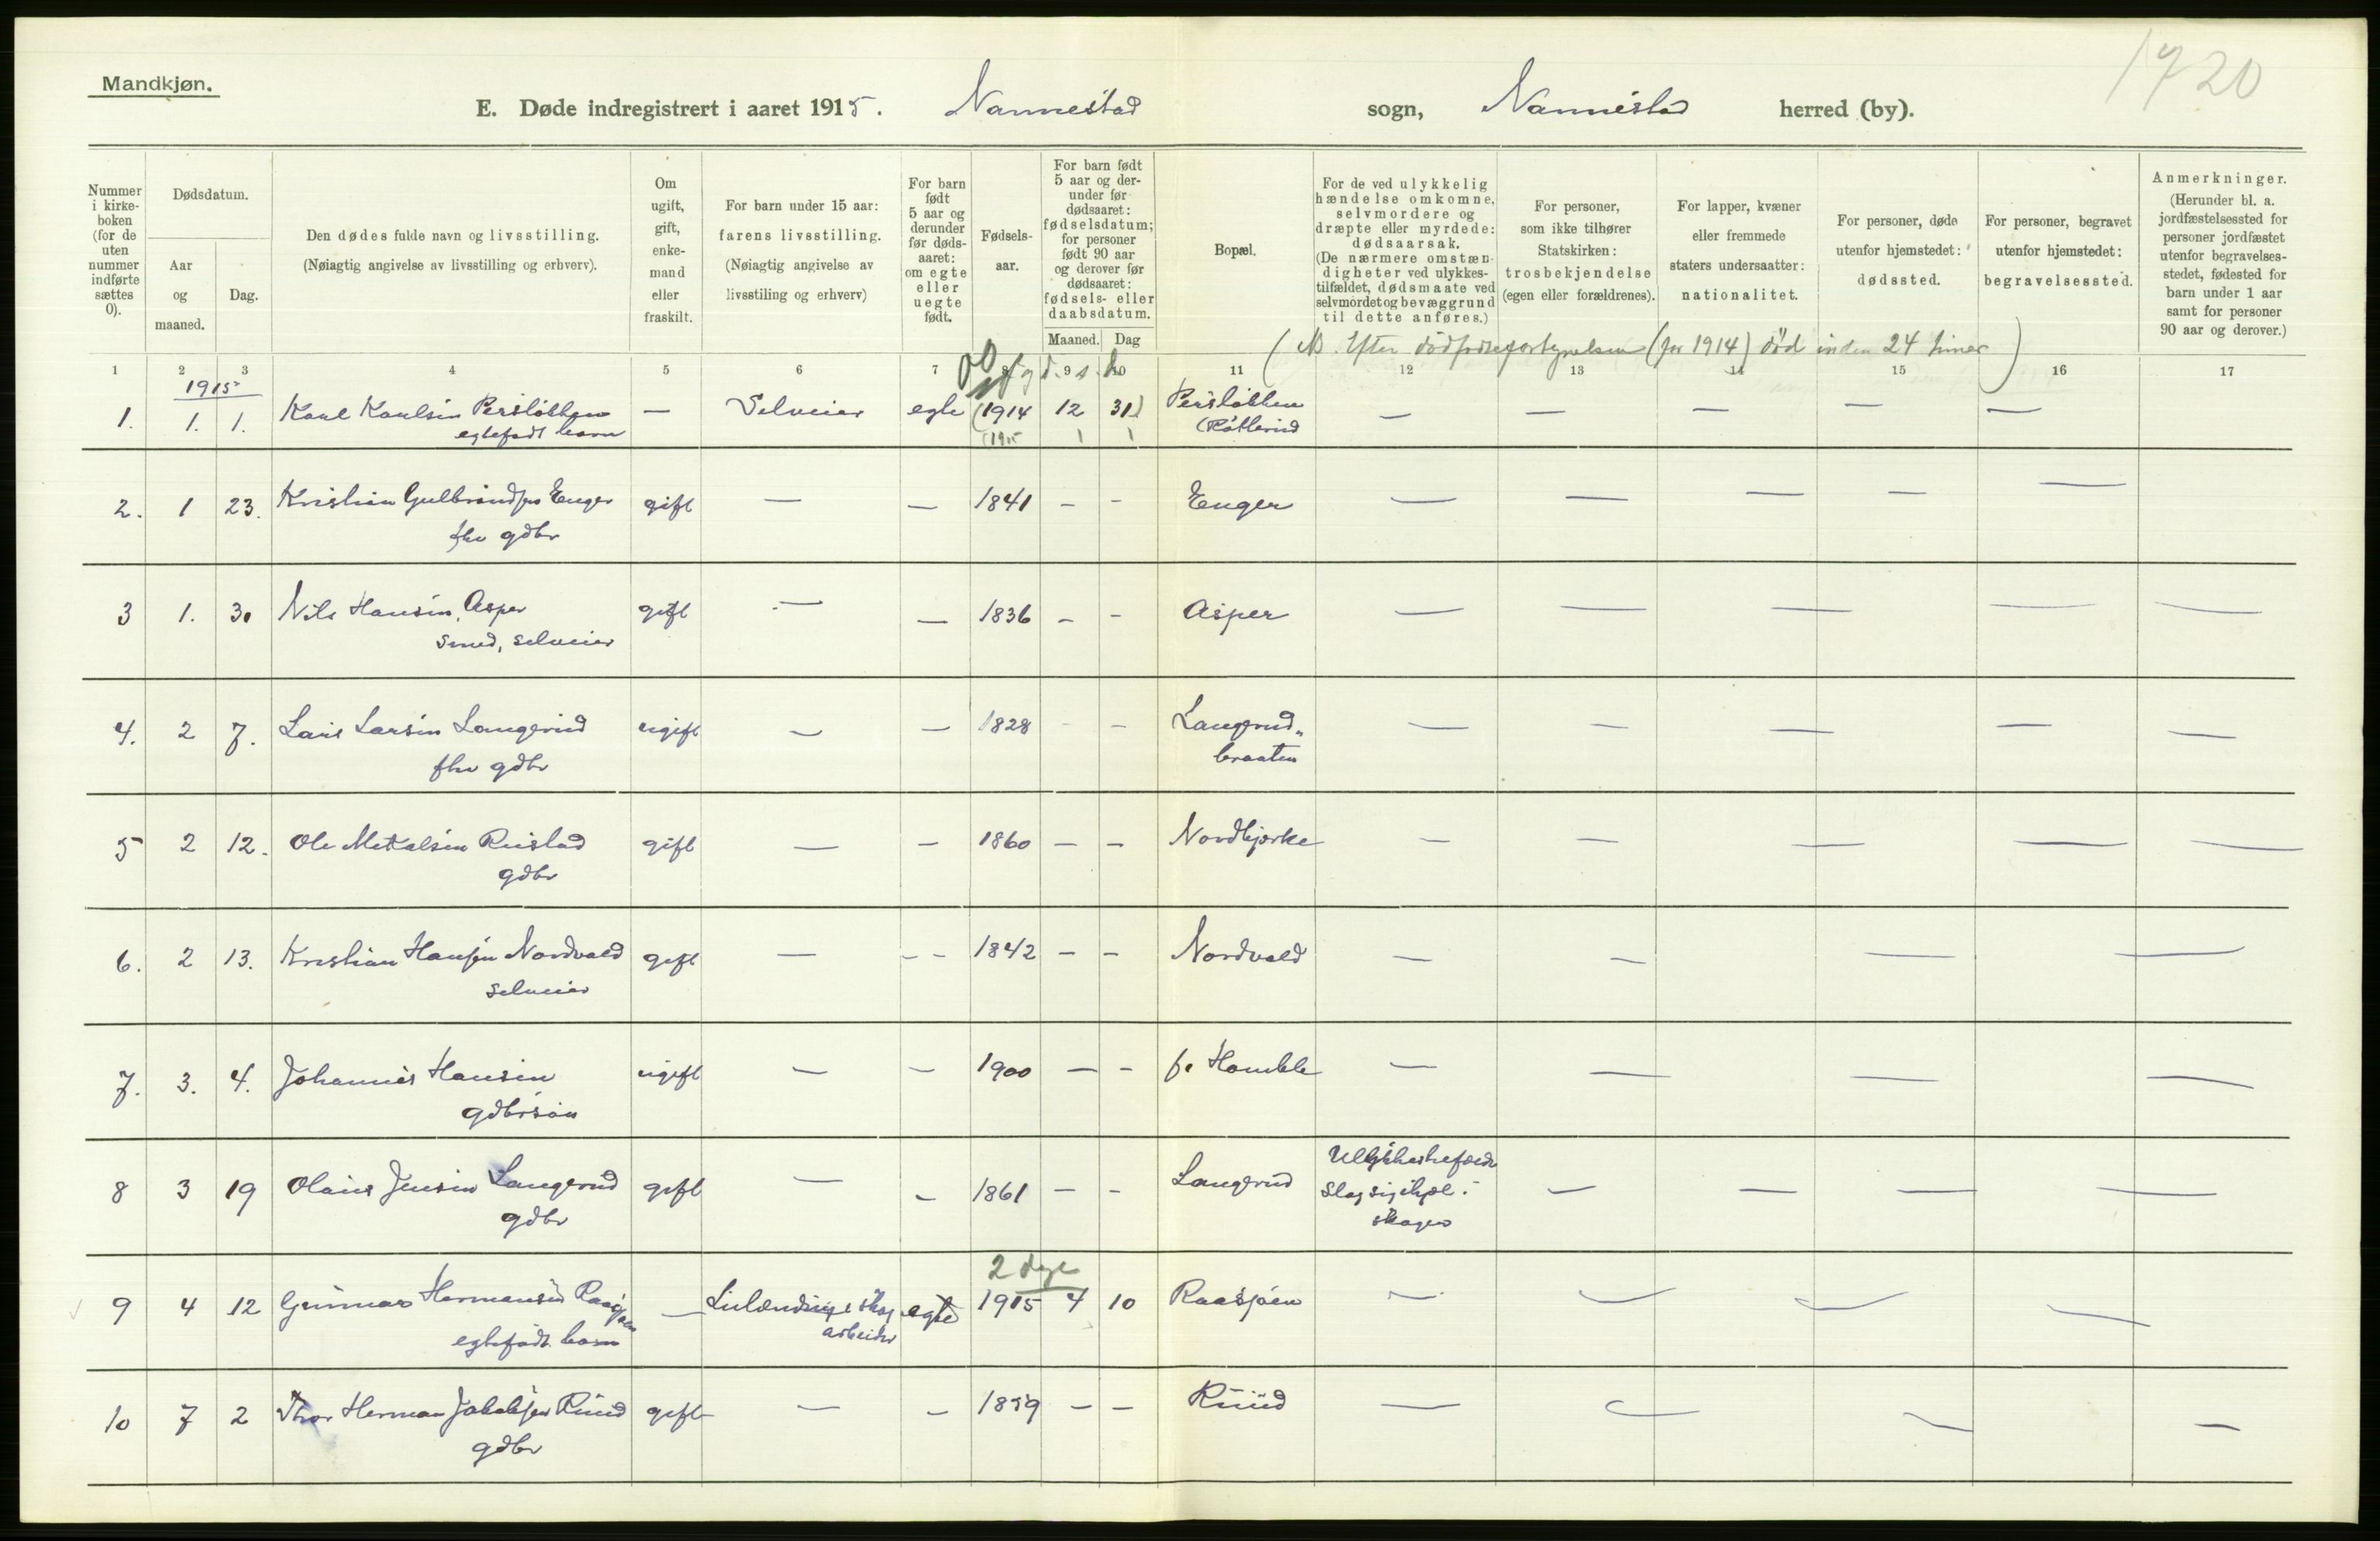 Mandkjøn.
1920
E. Døde indregistrert i aaret 1915. Nannestad sogn, Nannestad herred (by).
Nummer i kirke-boken (for de uten nummer indførte sættes 0).
Dødsdatum.
Aar og maaned.
Dag.
Den dødes fulde navn og livsstilling.
(Nøiagtig angivelse av livsstilling og erhverv).
Om ugift, gift, enke-mand eller fraskilt.
For barn under 15 aar: farens livsstilling.
(Nøiagtig angivelse av livsstiling og erhverv)
For barn født 5 aar og derunder før døds-aaret: om egte eller uegte født.
Fødsels-aar.
For barn født 5 aar og der-under før dødsaaret: fødselsdatum; for personer født 90 aar og derover før dødsaaret: fødsels- eller daabsdatum.
Maaned. Dag
Bopæl.
For de ved ulykkelig hændelse omkomne, selvmordere og dræpte eller myrdede: dødsaarsak.
(De nærmere omstæn-digheter ved ulykkes-tilfældet, dødsmaate ved selvmordet og bevæggrund til dette anføres.)
For personer, som ikke tilhører Statskirken: trosbekjendelse (egen eller forældrenes).
For lapper, kvæner eller fremmede staters undersaatter: nationalitet.
For personer, døde utenfor hjemstedet: dødssted.
For personer, begravet utenfor hjemstedet: begravelsessted.
Anmerkninger.
(Herunder bl. a. jordfæstelsessted for personer jordfæstet utenfor begravelses-stedet, fødested for barn under 1 aar samt for personer 90 aar og derover.)
død inden 24 timer)
1 2 3 4 5 6 7 8 9 10 11 12 13 14 15 16 17
1915
1. 1. 1. Karl Karlsen Persløkken — Selveier egte (1914 12 31) Persløkken — — — — —
egtefødt barn (1915 1 1
2. 1 23. Kristian Gulbrandsen Enger gift — — 1841 - - Enger — — — — —
fhv gdbr
3 1. 30 Nils Hansen, Asper gift — — 1836 - - Asper — — — — —
Smed, selveier
4. 2 7. Lars Larsen Langerud ugift — — 1828 - - Langerud- — — — — —
fhv gdbr braaten
5 2 12. Ole Mikkelsen Ruistad gift — — 1860 — — Nordbjørke — — — — —
gdbr
6. 2 13. Kristian Hansen Nordvald gift — — - 1842 — — Nordvald — — — —
selveier
7. 3. 4. Johannes Hansen ugift — — 1900 — - — — — —
gdbrsøn
8 3 19 Olaus Jensen Langerud gift — — 1861 — - Langerud — — — —
gdbr skogen
2 dage
9 4 12 Gunnar Hermansen Raasjøen — skog- egte 1915 4 10 Raasjøen — — — —
egtefødt barn arbeider
10 7 2 Thor Herman Jakobsen Ruud gift — — 1859 — — Ruud — — — —
gdbr